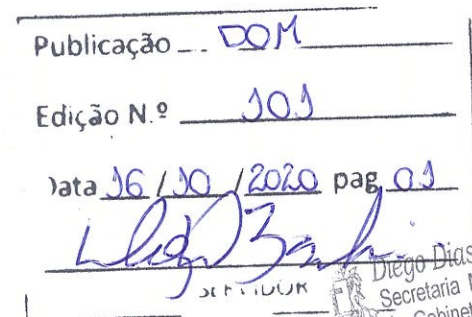 Publicação DOM
Edição N.º 101
Data 16/10/2020 pag 01
SERVIDOR
Diego Dias
Secretaria
Gabinet